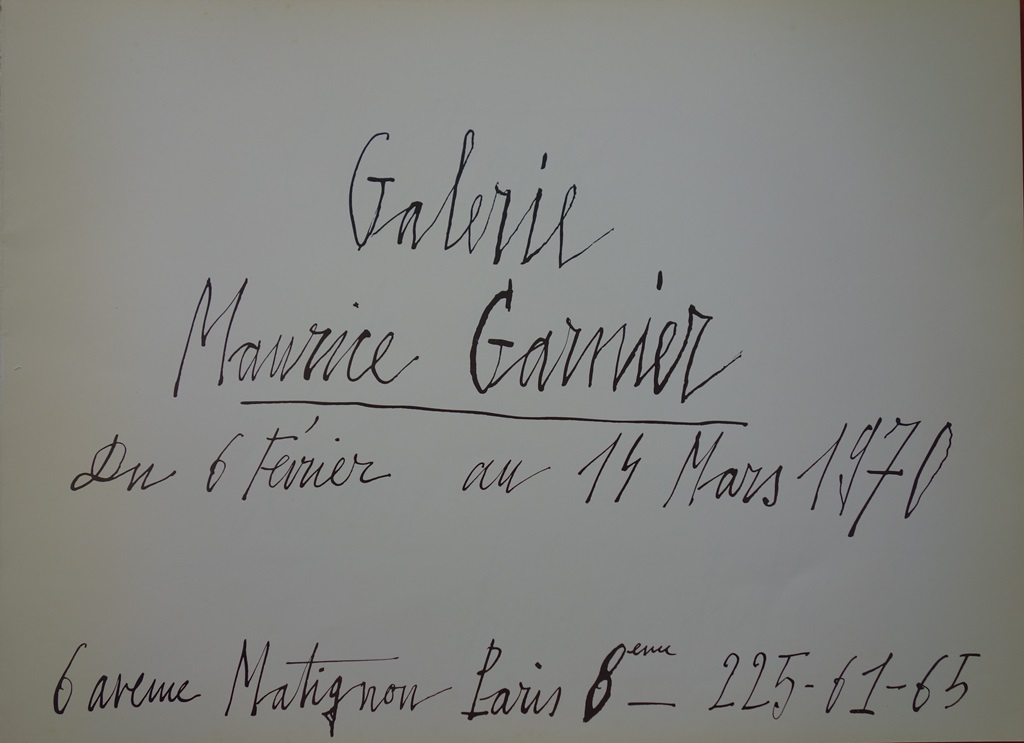 Galerie
Maurice Garnier
Du 6 Février au 14 Mars 1970
6 avenue Matignon Paris 8eme _ 225-61-65